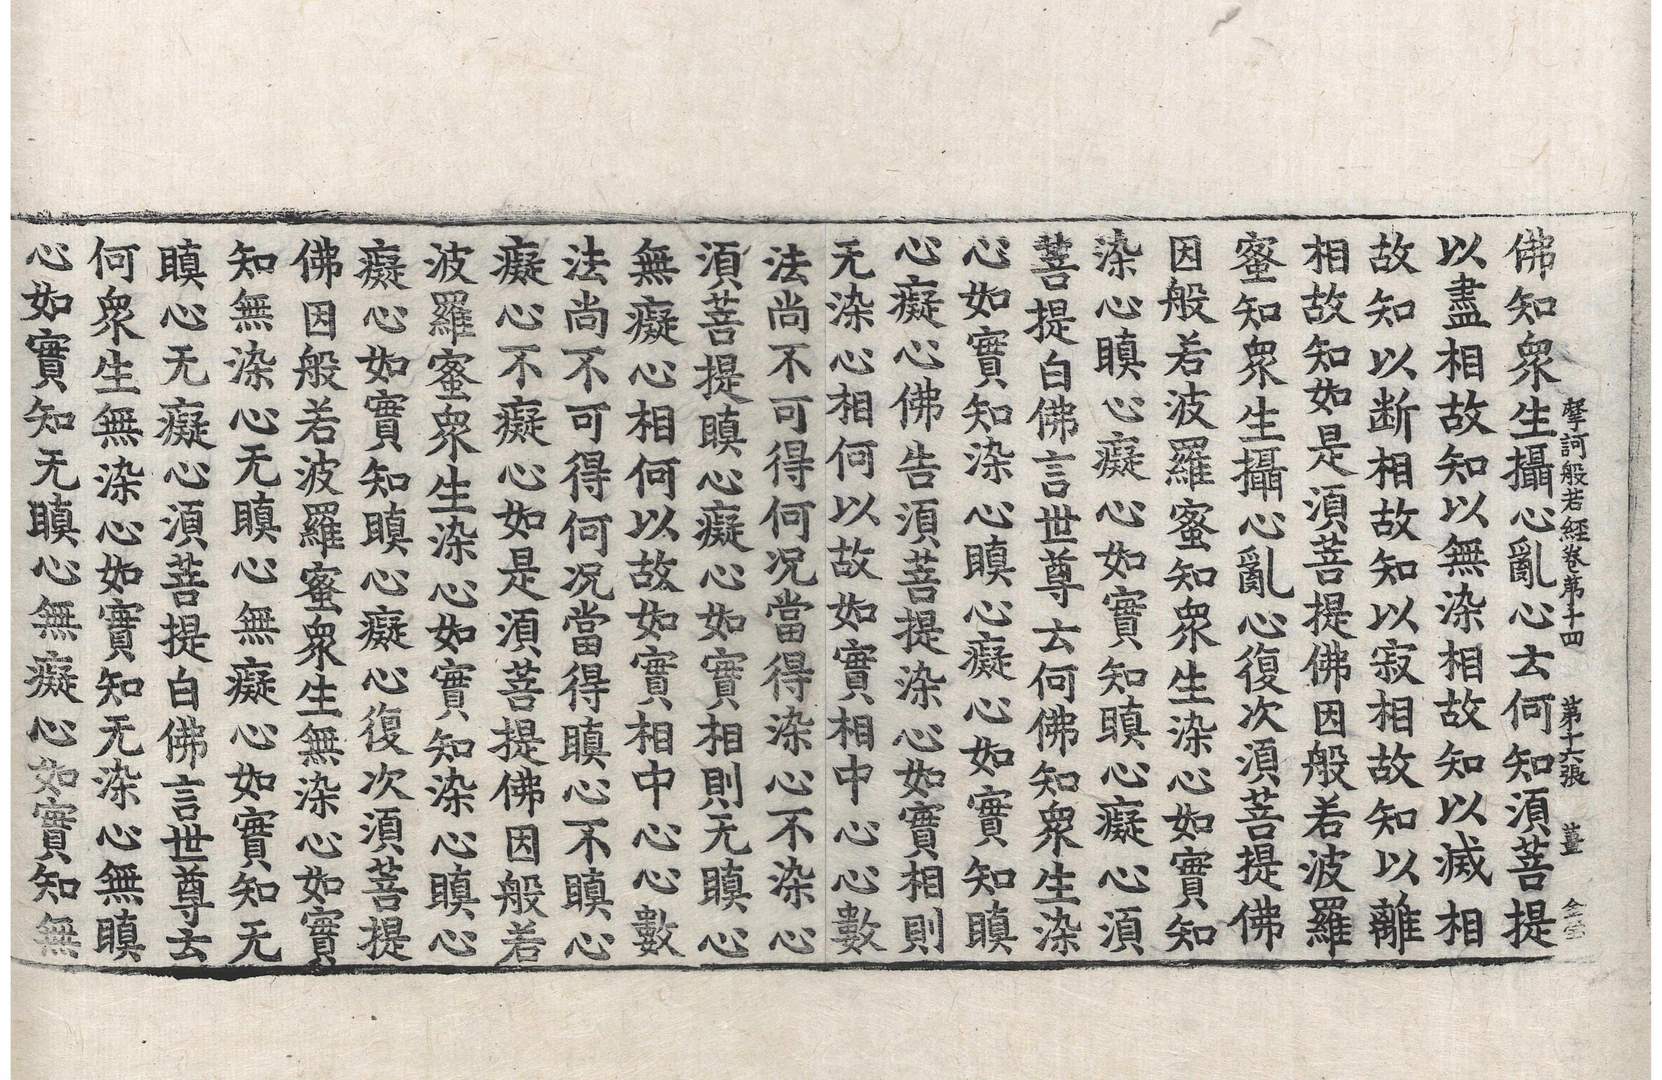 摩訶般若經卷第十四 第十六張 薑
佛知衆生攝心亂心去何知湏菩提
以盡相故知以無染相故知以滅相
故知以断相故知以寂相故知以離
相故知如是湏菩提佛因般若波羅
蜜知衆生攝心亂心復次湏菩提佛
因般若波羅蜜知衆生染心如實知
染心瞋心癡心如實知瞋心癡心湏
菩提白佛言世尊去何佛知衆生染
心如實知染心瞋心癡心如實知瞋
心癡心佛告湏菩提染心如實相則
无染心相何以故如實相中心心數
法尚不可得何况當得染心不染心
湏菩提瞋心癡心如實相則无瞋心
無癡心相何以故如實相中心心數
法尚不可得何况當得瞋心不瞋心
癡心不癡心如是湏菩提佛因般若
波羅蜜衆生染心如實知染心瞋心
癡心如實知瞋心癡心復次湏菩提
佛因般若波羅蜜衆生無染心如實
知無染心无瞋心無癡心如實知无
瞋心无癡心湏菩提白佛言世尊去
何衆生無染心如實知无染心無瞋
心如實知无瞋心無癡心如實知無